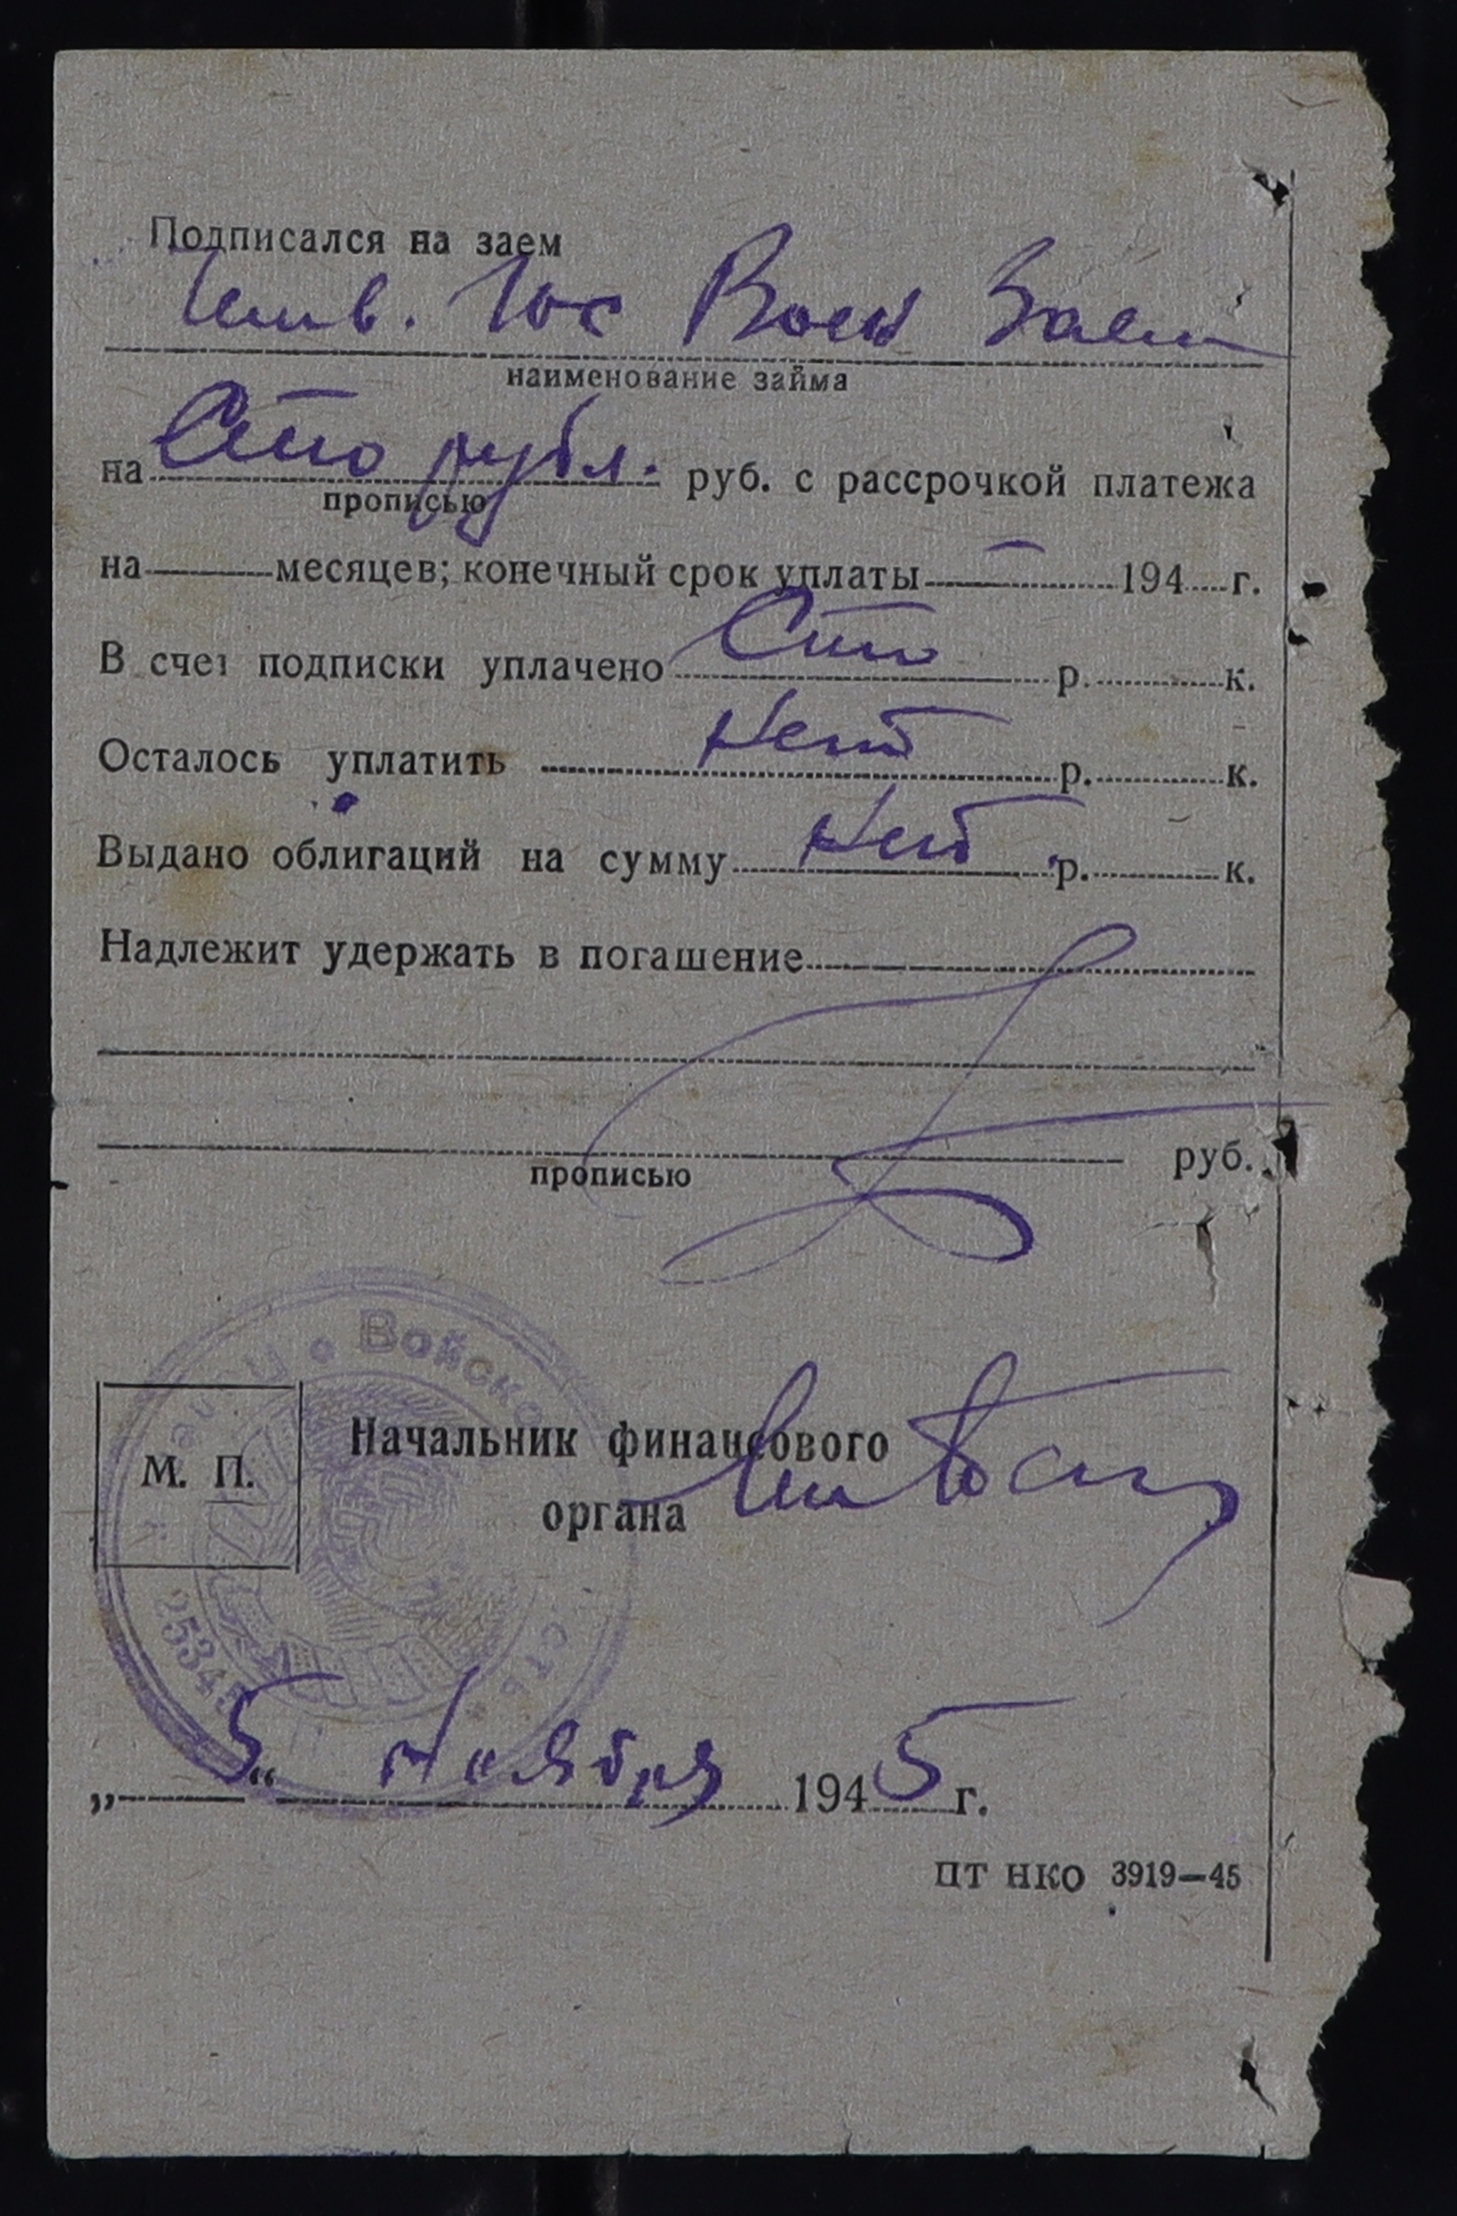 Подписался на заем
Четв. Гос Воен Заем
наименование займа
на Сто рубл. руб. с рассрочкой платежа
прописью
на месяцев; конечный срок уплаты 194 г.
В счет подписки уплачено Сто р. к.
Осталось уплатить Нет р. к.
Выдано облигаций на сумму Нет р. к.
Надлежит удержать в погашение
прописью руб.
Войско
М. П.
Начальник финансового
органа
25345
„ 5 “ Ноября 1945 г.
ПТ НКО 3919—45